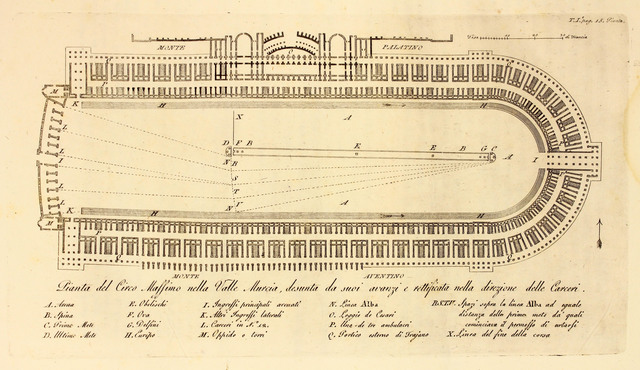 T. I. pag. 15.
MONTE PALATINO
MONTE AVENTINO
Pianta del Circo Massimo nella Valle Murcia, desunta da suoi avanzi e rettificata nella direzione delle Carceri.
A. Arena
B. Spina
C. Prime Mete
D. Ultime Mete
E. Obelischi
F. Ova
G. Delfini
H. Euripo
I. Ingressi principali arcuati
K. Altri Ingressi laterali
L. Carceri in N.º 12.
M. Oppido o torri
N. Linea Alba
O. Loggie de Cesari
P. Uno de tre ambulacri
Q. Portico esterno di Trajano
Spazj sopra la linea Alba ad uguale
distanza della prima meta da quali
cominciava il permesso di urtarsi
X. Linea del fine della corsa